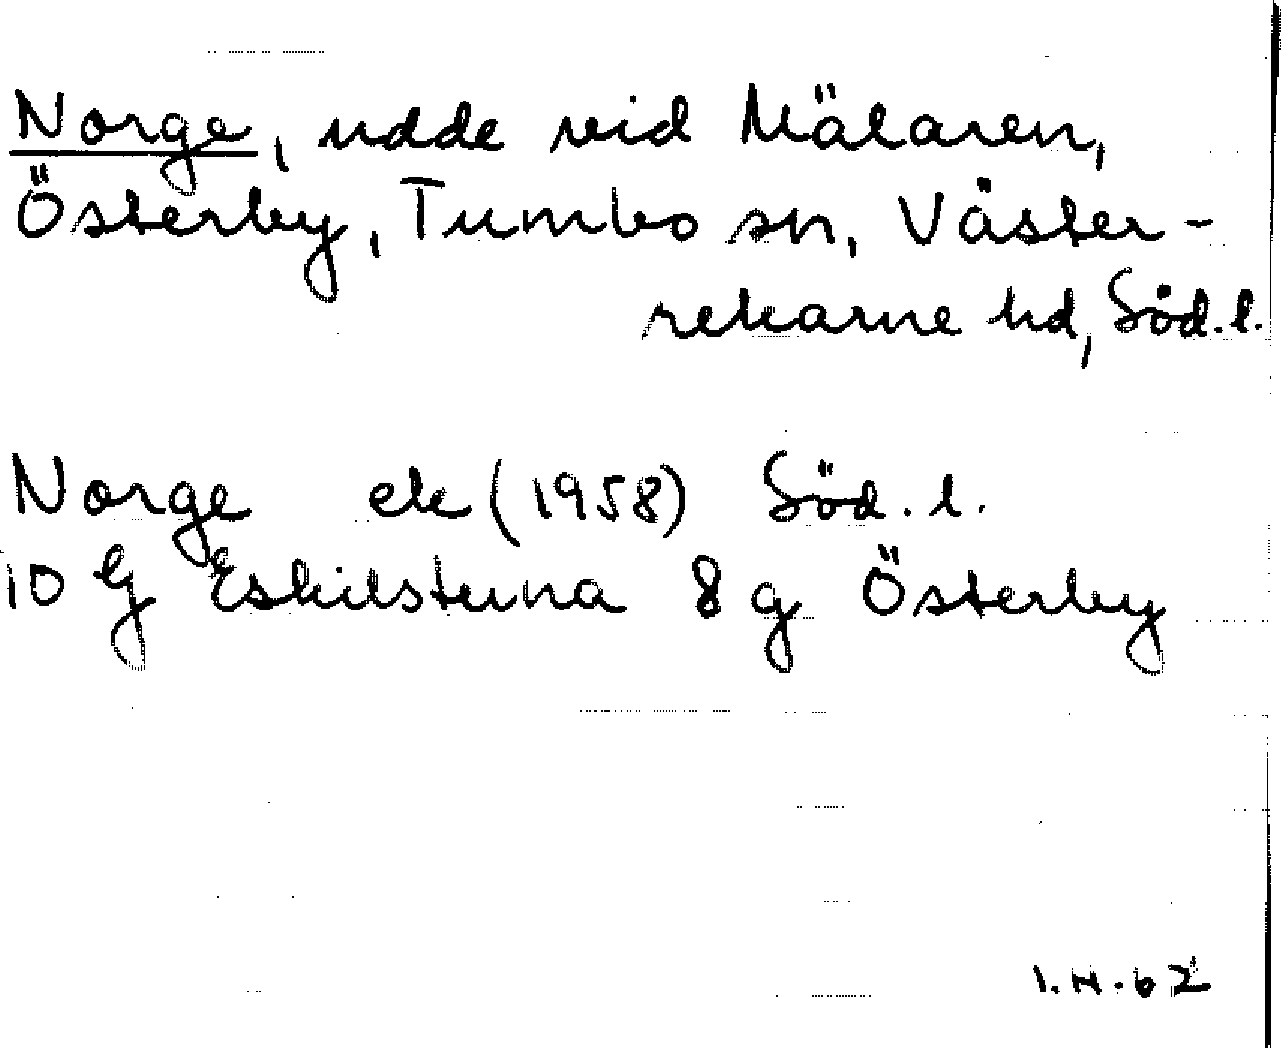 Norge, udde vid Mälaren,
Österby, Tumbo sn, Väster-
rekarne hd, Söd.l.
Norge ek (1958) Söd.l.
10 G Eskilstuna 8 g Österby
I.H.62